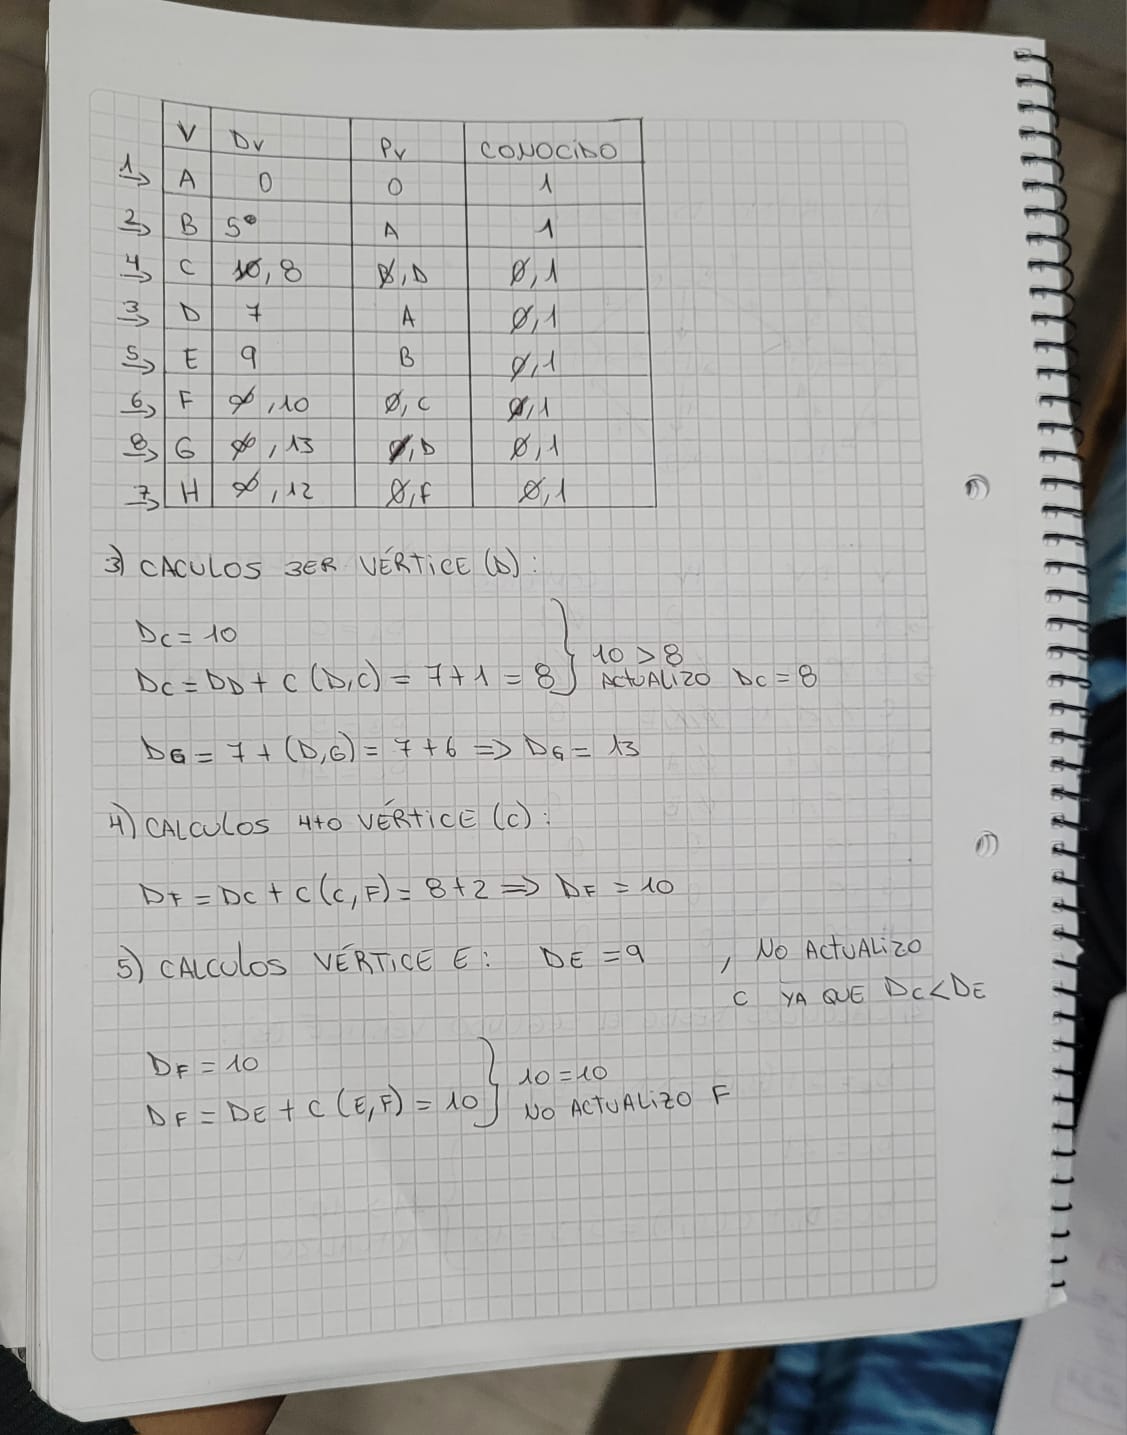 V Dv Pv CONOCIDO
1→ A 0 0 1
2→ B 5 A 1
4→ C 10, 8 0, D 0, 1
3→ D 7 A 0, 1
5→ E 9 B 0, 1
6→ F ∞, 10 0, C 0, 1
8→ G ∞, 13 0, D 0, 1
7→ H ∞, 12 0, F 0, 1
3) CACULOS 3ER VÉRTICE (D):
DC = 10
DC = DD + C (D,C) = 7+1 = 8 } 10 > 8
ACTUALIZO DC = 8
DG = 7 + (D,G) = 7+6 => DG = 13
4) CALCULOS 4to VÉRTICE (C):
DF = DC + C (C,F) = 8+2 => DF = 10
5) CALCULOS VÉRTICE E: DE = 9 , NO ACTUALIZO
C YA QUE DC<DE
DF = 10
DF = DE + C (E,F) = 10 } 10 = 10
NO ACTUALIZO F